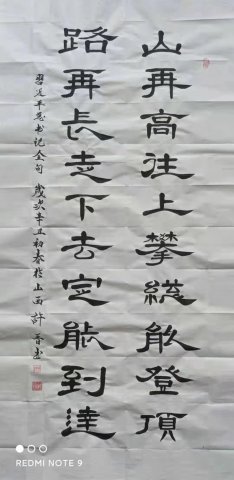 山再高往上攀総能登頂
路再長走下去定能到達
習近平总书记金句 歲次辛丑初春於山西 許晋书
REDMI NOTE 9